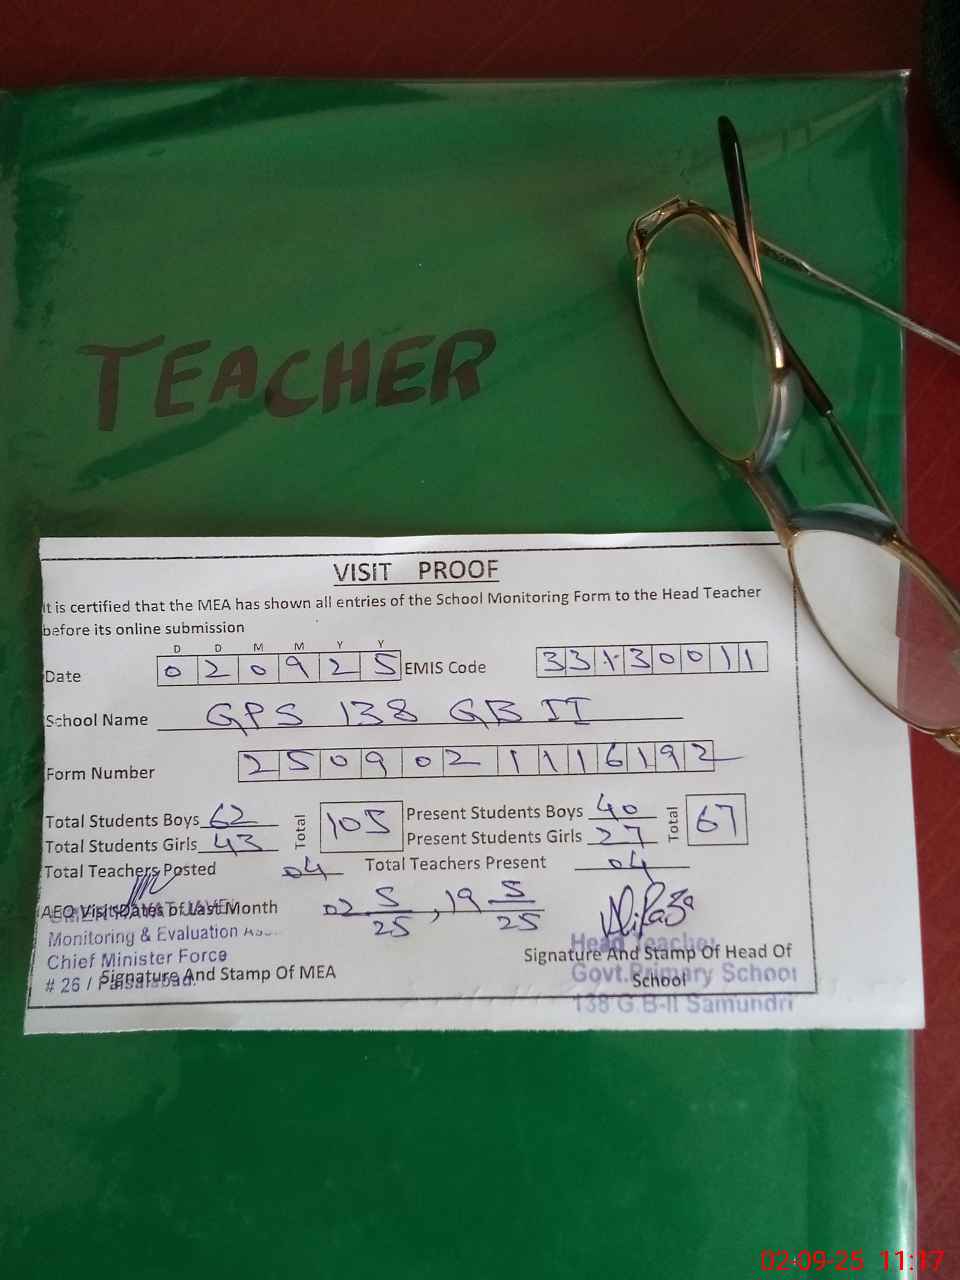 TEACHER
VISIT PROOF
It is certified that the MEA has shown all entries of the School Monitoring Form to the Head Teacher
before its online submission
D D M M Y Y
Date 0 2 0 9 2 5 EMIS Code 3 3 1 3 0 0 1 1
School Name GPS 138 GB II
Form Number 2 5 0 9 0 2 1 1 1 6 1 9 2
Total Students Boys 62 Total 105 Present Students Boys 40 Total 67
Total Students Girls 43 Present Students Girls 27
Total Teachers Posted 04 Total Teachers Present 04
AEO Visit Dates of Last Month 02 5/25, 19 5/25
Monitoring & Evaluation
Chief Minister Force
# 26 / Faisalabad.
Signature And Stamp Of MEA
Head Teacher
Signature And Stamp Of Head Of
School
Govt. Primary School
138 G.B-II Samundri
02-09-25 11:17